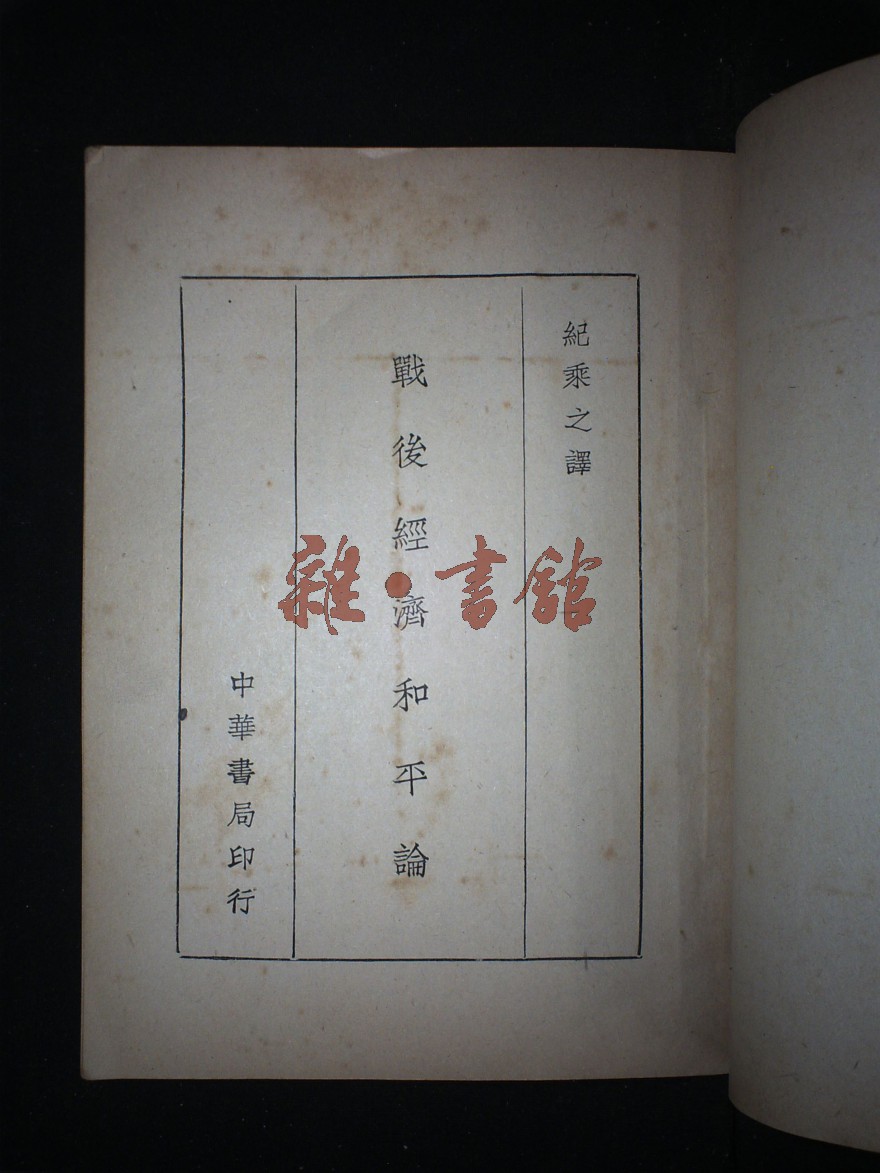 紀乘之譯
戰後經濟和平論
中華書局印行
雜·書館